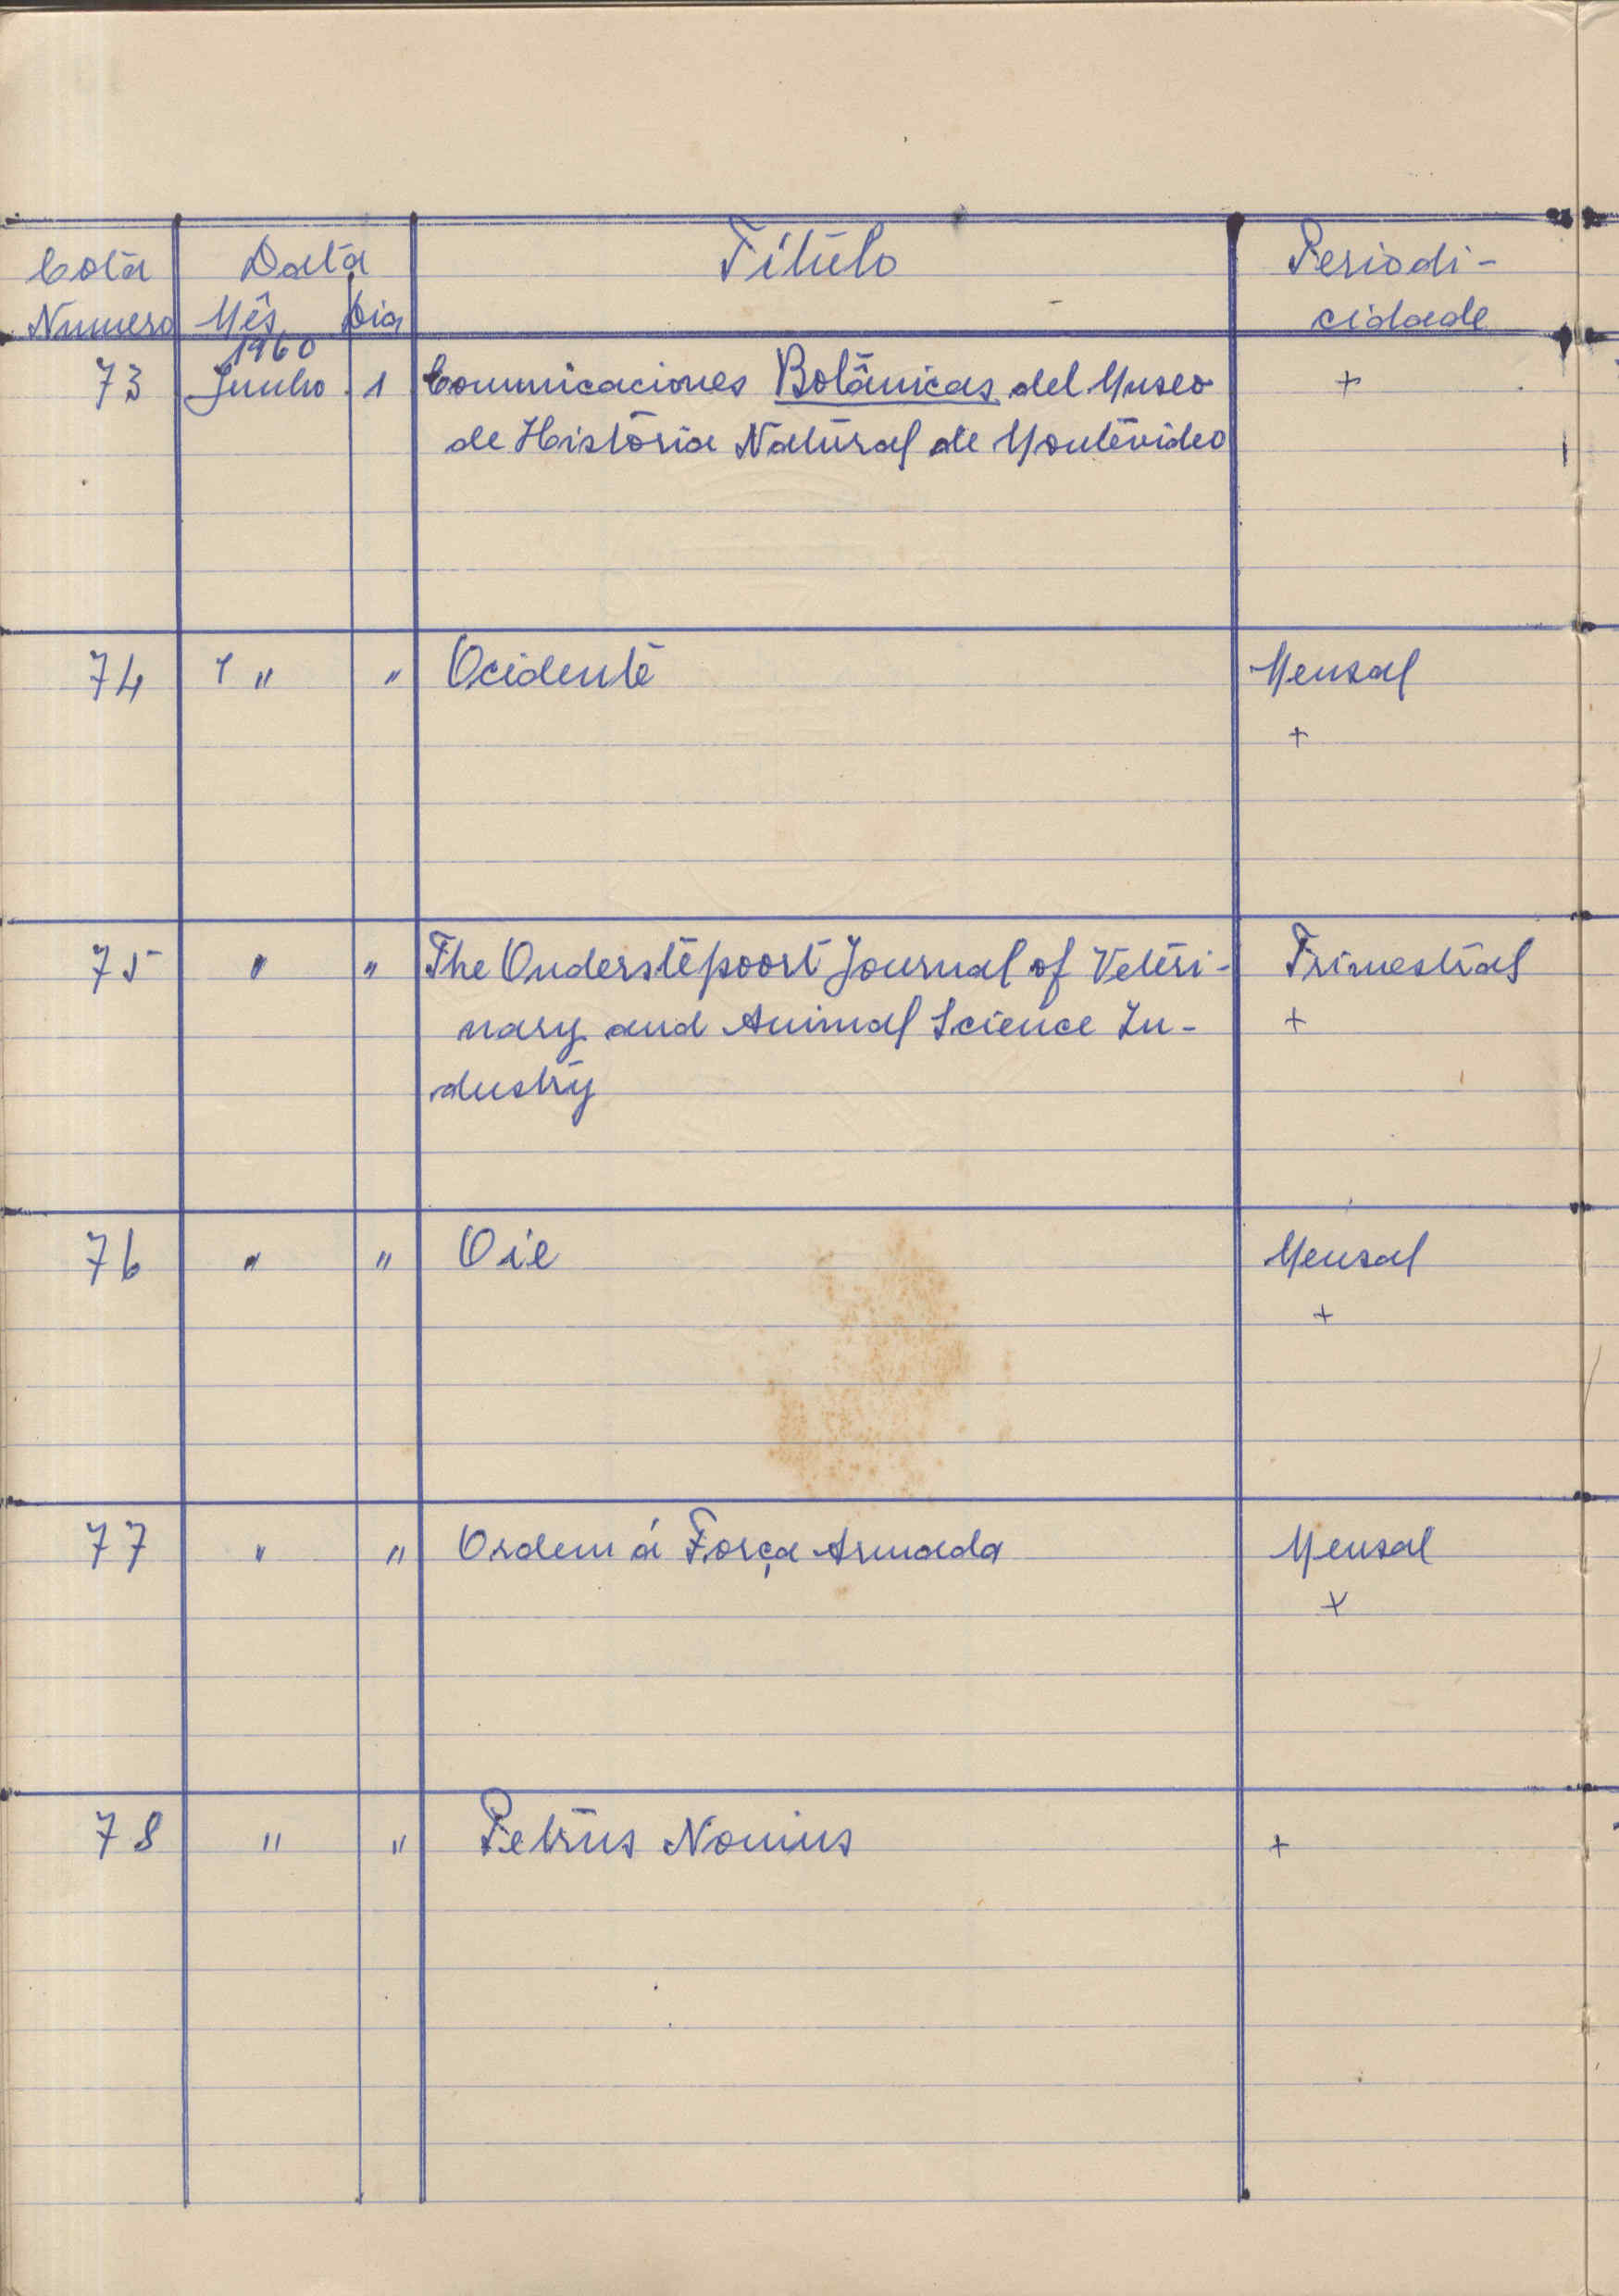 Cota Data Título Periodi-
Numero Mês Dia cidade
1960
73 Junho 1 Comunicaciones Botânicas del Museo +
de História Natural de Montevideo
74 " " Ocidente Mensal
+
75 " " The Onderstepoort Journal of Veteri- Trimestral
nary and Animal Science In- +
dustry
76 " " Oie Mensal
+
77 " " Ordem á Força Armada Mensal
+
78 " " Petrus Nonius +